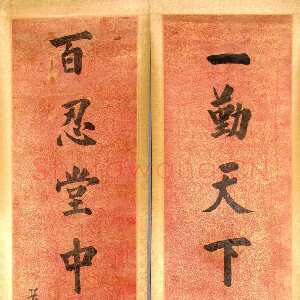 一勤天下
百忍堂中